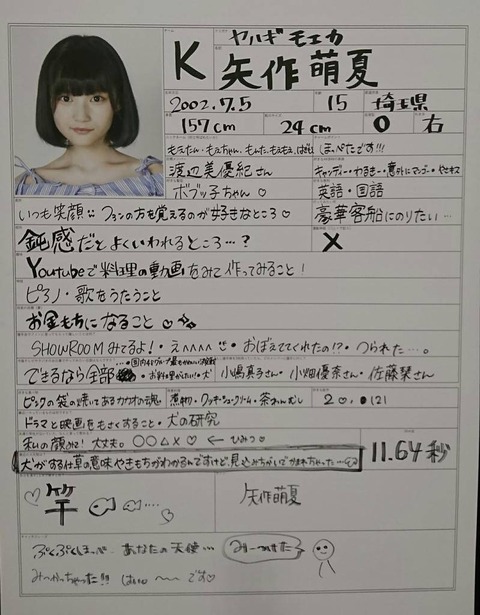 ヤハギ モエカ
K 矢作 萌夏
2002.7.5 15 埼玉県
157cm 24cm O 右
もえたん・もえちゃん、もんた、もえもえ、 ほっぺたごす!!!
渡辺美優紀さん キャンディー・わるきー・意外にマンゴー・
ボブッ子ちゃん♡ 英語・国語
いつも笑顔 ファンの方も覚えるのが好きなところ♡ 豪華客船にのりたい…
鈍感だとよくいわれるところ…? ×
Youtubeで料理の動画をみて作ってみること!
ピアノ・歌をうたうこと
お金もちになること♡
SHOWROOMみてるよ!・えへへへへ・おぼえててくれたの!?・つられた…。
できるなら全部 ・お料理がしたい!・犬 小嶋真子さん・小畑優奈さん・佐藤栞さん
ピンクの袋の焼いてあるカカオの魂 煮物・クッキーシュークリーム・茶わんむし 20.0121
ドラマと映画をもくすること・犬の研究
私の顔みて!大丈夫。○○△×♡ ←ひみつ♡ 11.64秒
犬がする仕草の意味やきもちがわかるんですけど、見込みちがいでかまれちゃった…
矢作萌夏
ぷくぷくほっぺ あなたの天使… みーつけた♡
みーつかっちゃった!!! はい〜です♡